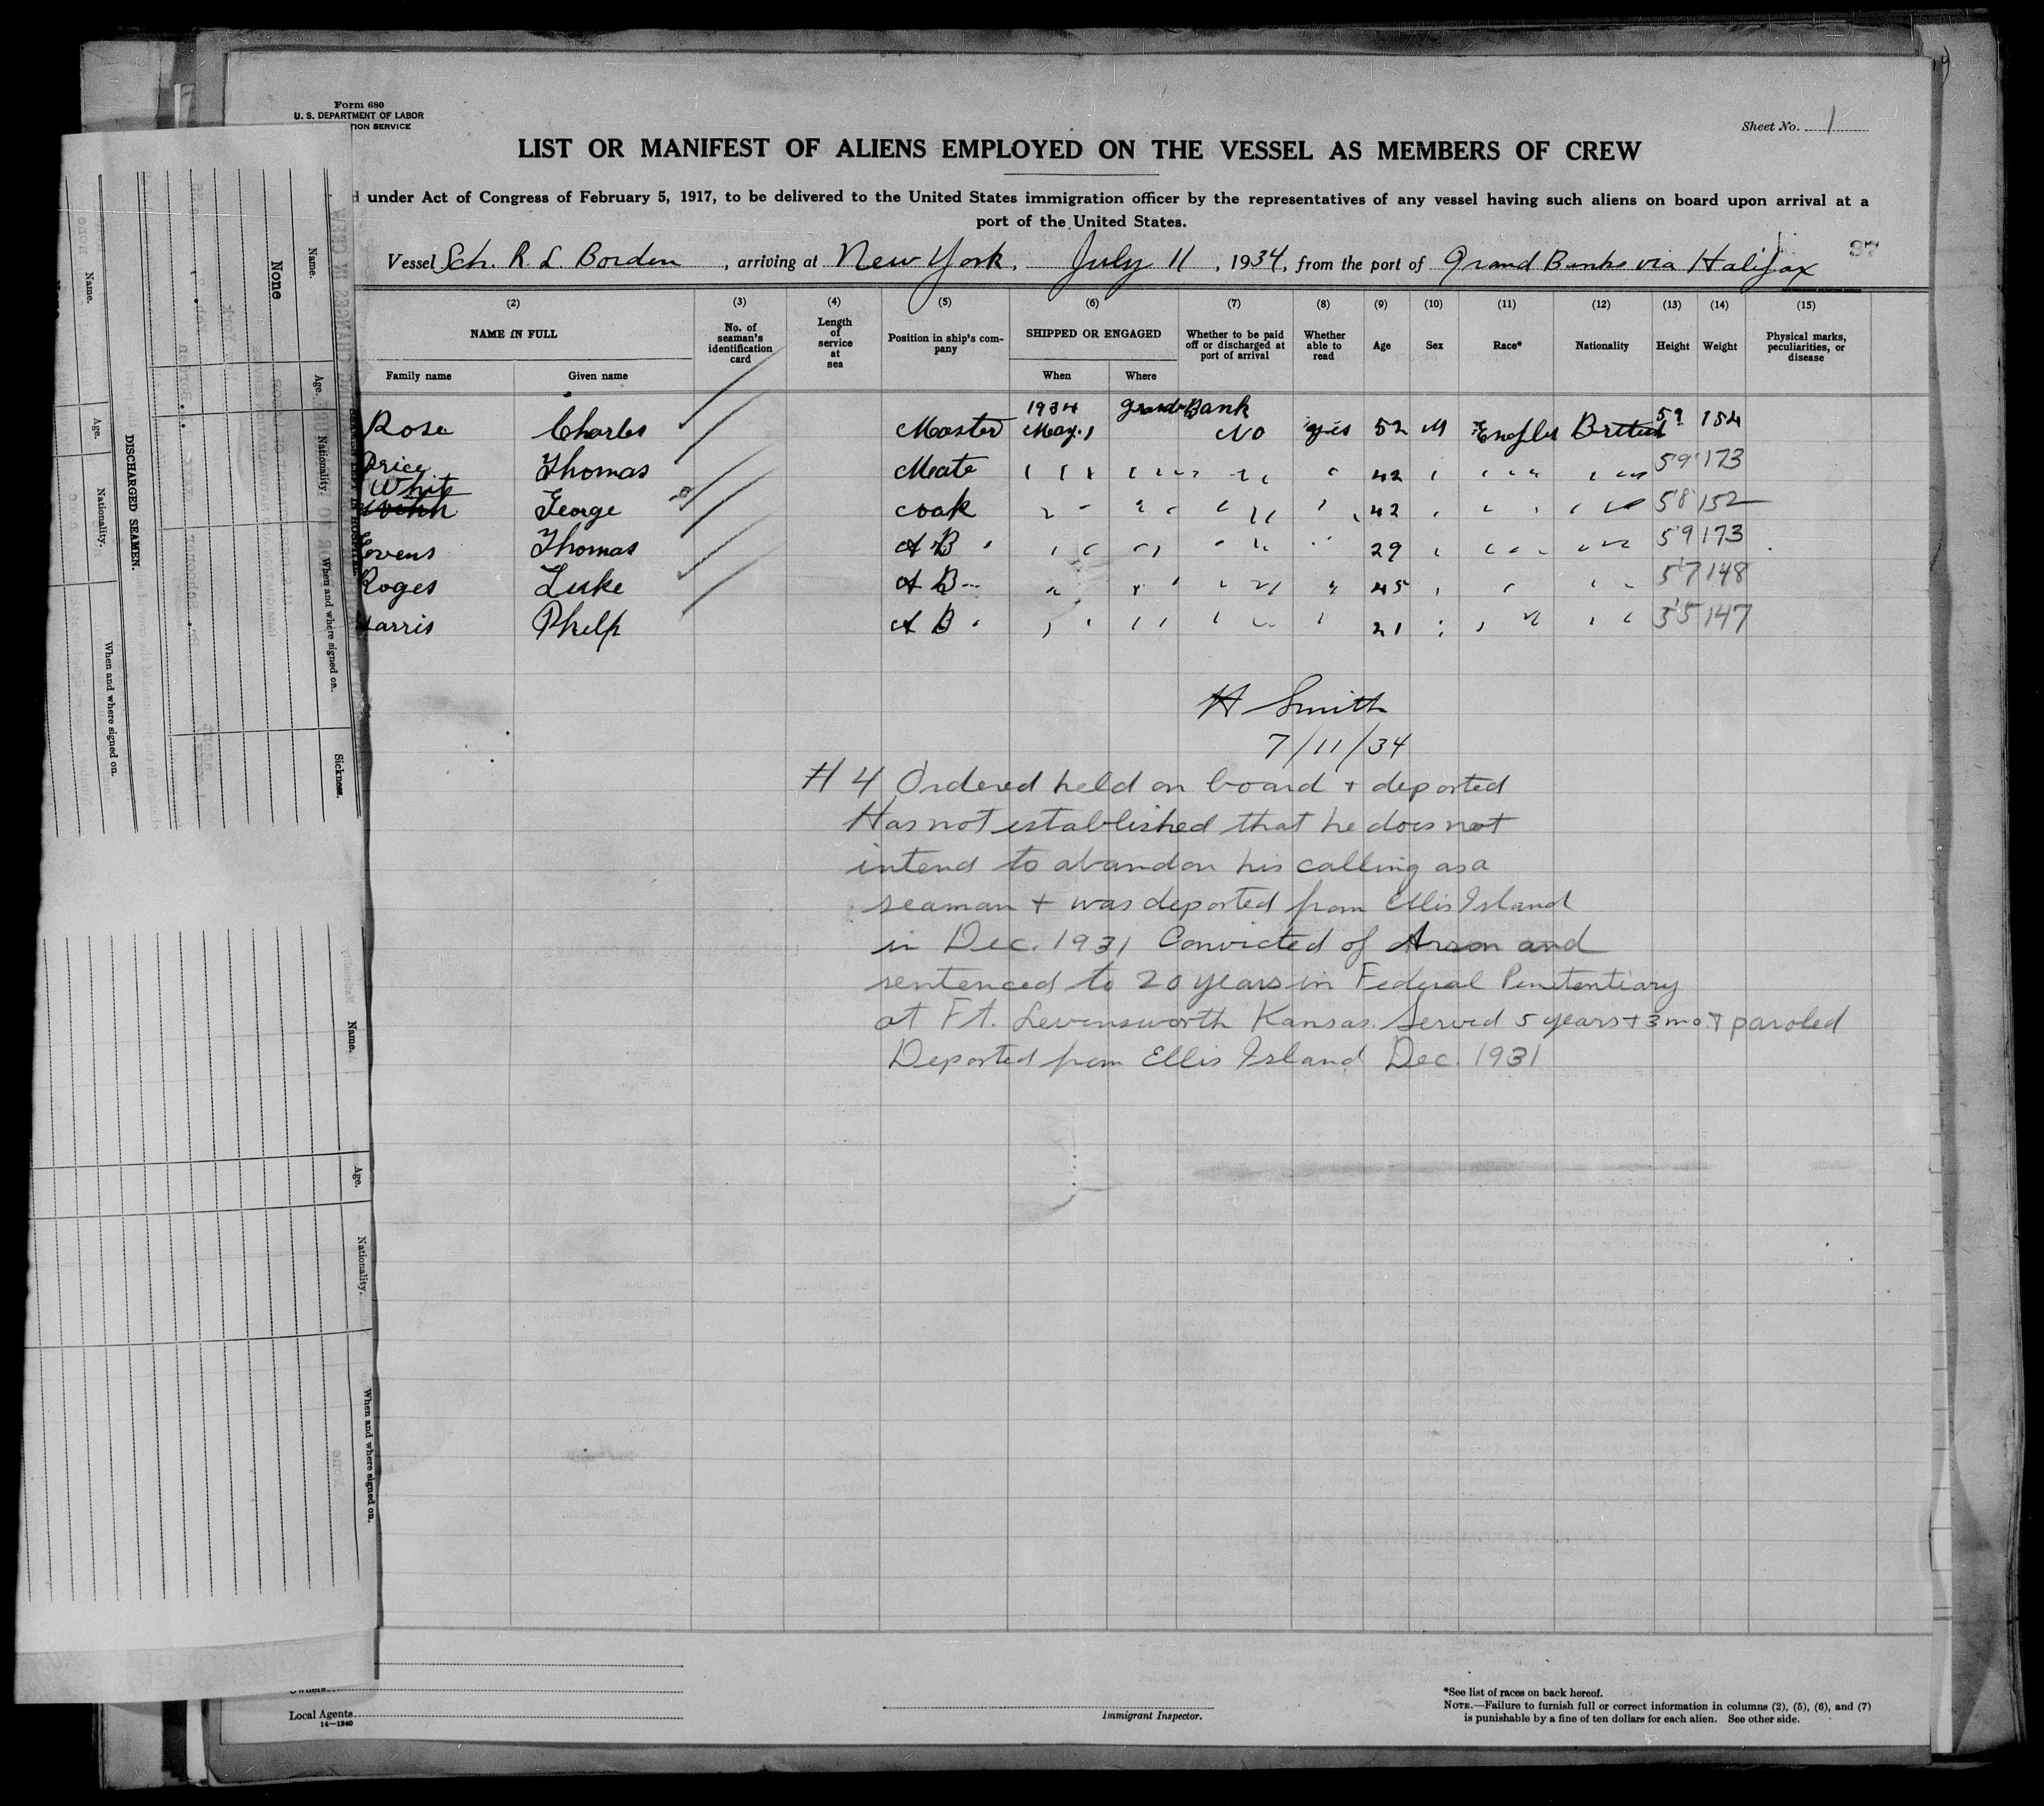 Form 680
U. S. DEPARTMENT OF LABOR
TION SERVICE
Sheet No. 1
LIST OR MANIFEST OF ALIENS EMPLOYED ON THE VESSEL AS MEMBERS OF CREW
under Act of Congress of February 5, 1917, to be delivered to the United States immigration officer by the representatives of any vessel having such aliens on board upon arrival at a
port of the United States.
Vessel Sch. R. L. Borden, arriving at New York, July 11, 1934, from the port of Grand Banks via Halifax
(2) (3) (4) (5) (6) (7) (8) (9) (10) (11) (12) (13) (14) (15)
NAME IN FULL
Family name Given name
No. of seaman's identification card
Length of service at sea
Position in ship's company
SHIPPED OR ENGAGED
When Where
Whether to be paid off or discharged at port of arrival
Whether able to read
Age
Sex
Race*
Nationality
Height
Weight
Physical marks, peculiarities, or disease
1934 Grand Bank
Rose Charles Master May 1 No yes 52 M British 59 184
Price Thomas Mate 42 5'9 173
White
George cook 42 5'8 152
Evens Thomas A B 29 5'9 173
Roges Luke A B 45 5'7 148
Harris Phelp A B 21 147
H Smith
7/11/34
# 4 Ordered held on board + deported
Has not established that he does not
intend to abandon his calling as a
seaman + was deported from Ellis Island
in Dec. 1931 Convicted of Arson and
sentenced to 20 years in Federal Penetentiary
at Ft. Levensworth Kansas. Served 5 years + 3 mo. + paroled
Deported from Ellis Island Dec. 1931
Owners
Local Agents
14—1240
Immigrant Inspector.
*See list of races on back hereof.
NOTE.—Failure to furnish full or correct information in columns (2), (5), (6), and (7)
is punishable by a fine of ten dollars for each alien. See other side.
Name. Age. Nationality. When and where signed on. Sickness.
None
DISCHARGED SEAMEN.
Name. Age. Nationality. When and where signed on.
Name. Age. Nationality. When and where signed on.